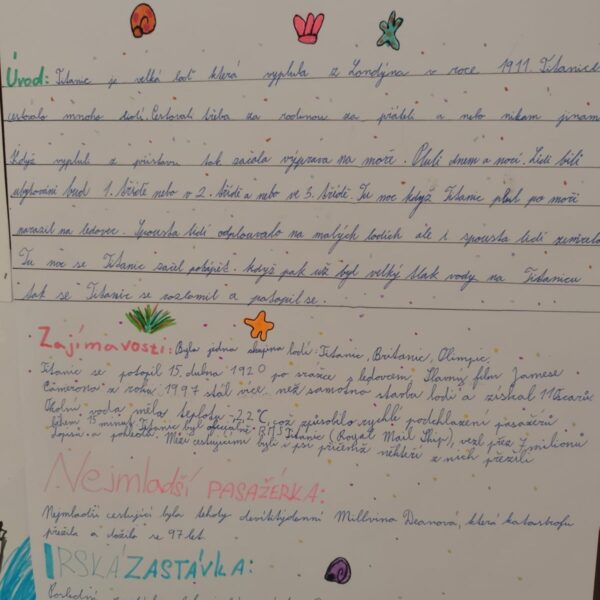 Úvod: Titanic je velká loď která vyplula z Londýna v roce 1911. Titanicem
cestovalo mnoho lidí. Cestovali třeba za rodinou za přáteli a nebo nikam jinam
Když vypluli z přístavu tak začala výprava na moře. Pluli dnem a nocí. Lidi bili
ubytování buď 1. třídě nebo v 2. třídě a nebo ve 3. třídě. Tu noc když Titanic plul po moři
narazil na ledovec. Spousta lidí odplouvalo na malých lodích ale i spousta lidí zemřelo
Tu noc se Titanic začal potápět. když pak už byl velký tlak vody na Titanicu
tak se Titanic se rozlomil a potopil se.
Zajímavosti: Byla jedna skupina lodí: Titanic, Britanic, Olimpic,
Titanic se potopil 15. dubna 1920 po srážce s ledovcem. Slavný film Jamese
Camerona z roku 1997 stál více než samotna stavba lodi a získal 11 oscarů
Okolní voda měla teplotu -2,2°C, což způsobilo rychlí podchlazení pasažérů
během 15 minut. Titanic byl oficiálně RMS Titanic (Royal Mail Ship), vezl přez 7 milionů
dopisů a pohledů. Mezi cestujícími byli i psi přičemž někteří z nich přežili
Nejmladší PASAŽÉRKA:
Nejmladší cestující byla tehdy devítitýdenní Millvina Deanová, která katastrofu
přežila a dožila se 97 let.
IRSKÁ ZASTÁVKA:
Poslední